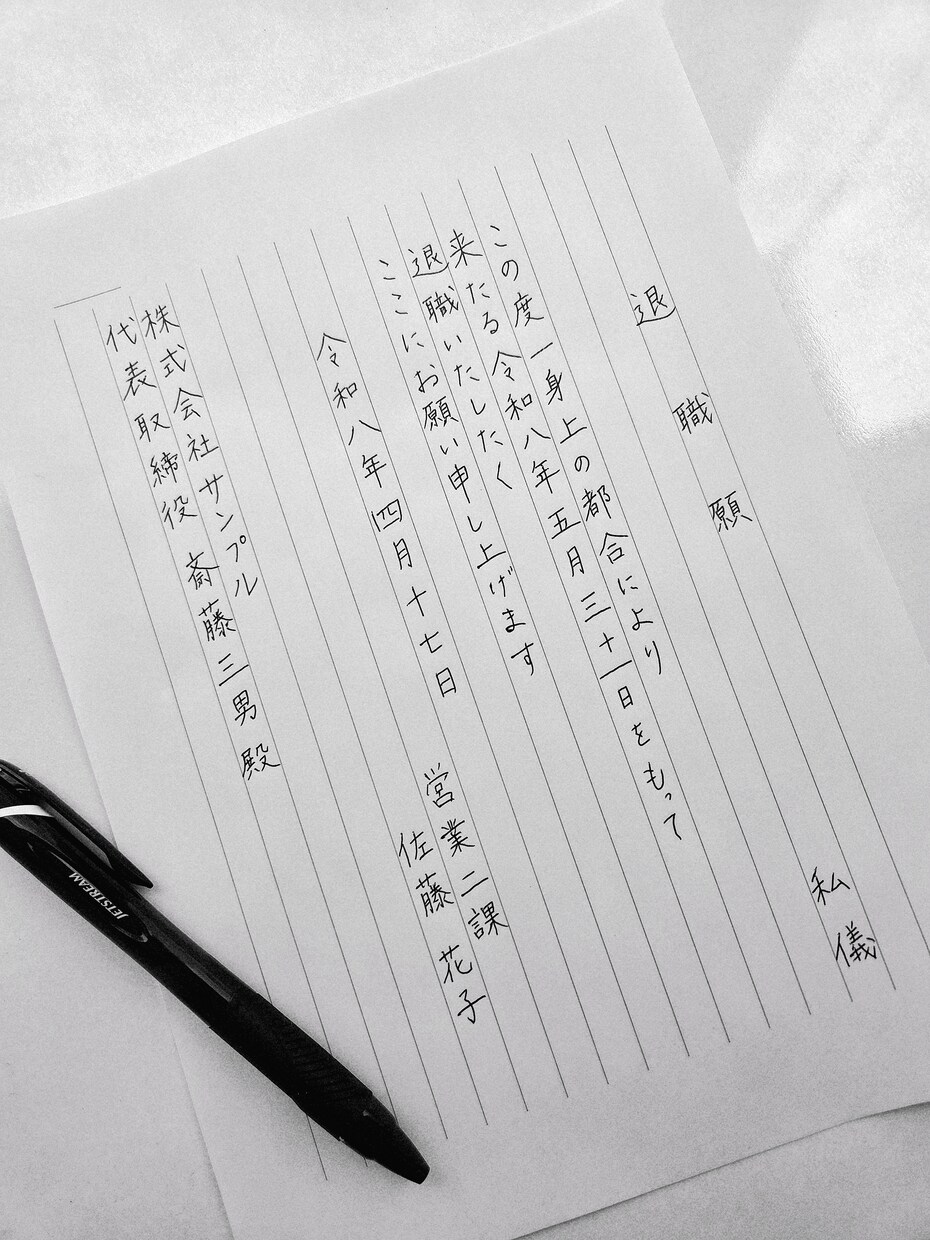 退職願
私儀
この度一身上の都合により
来たる令和八年五月三十一日をもって
退職いたしたく
ここにお願い申し上げます
令和八年四月十七日
営業二課
佐藤 花子
株式会社サンプル
代表取締役 斎藤三男 殿
JETSTREAM